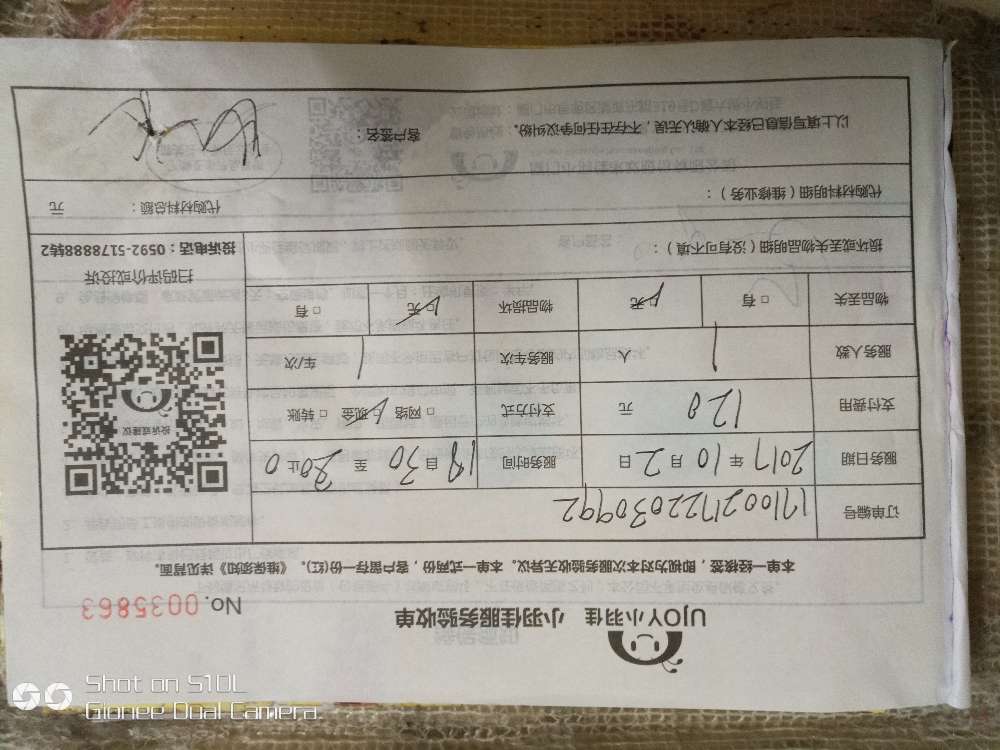 UJOY小羽佳 小羽佳服务验收单
No. 0035863
本单一经核签，即视为对本次服务验收无异议。本单一式两份，客户留存一份(红)。《维保须知》详见背面。
订单编号 1710021722030992
服务日期 2017年10月2日 服务时间 18自30至20止0
支付费用 120 元 支付方式 □网络 ☑现金 □转账
服务人数 1 人 服务车次 1 车/次
物品丢失 □有 ☑无 物品损坏 ☑无 □有
损坏或丢失物品明细（没有可不填）：
投诉或建议
扫码评价或投诉
投诉电话：0592-5178888转2
代购材料明细（维修业务）： 代购材料总额： 元
以上填写信息已经本人确认无误，不存在任何争议纠纷。 客户签名：
Shot on S10L
Gionee Dual Camera